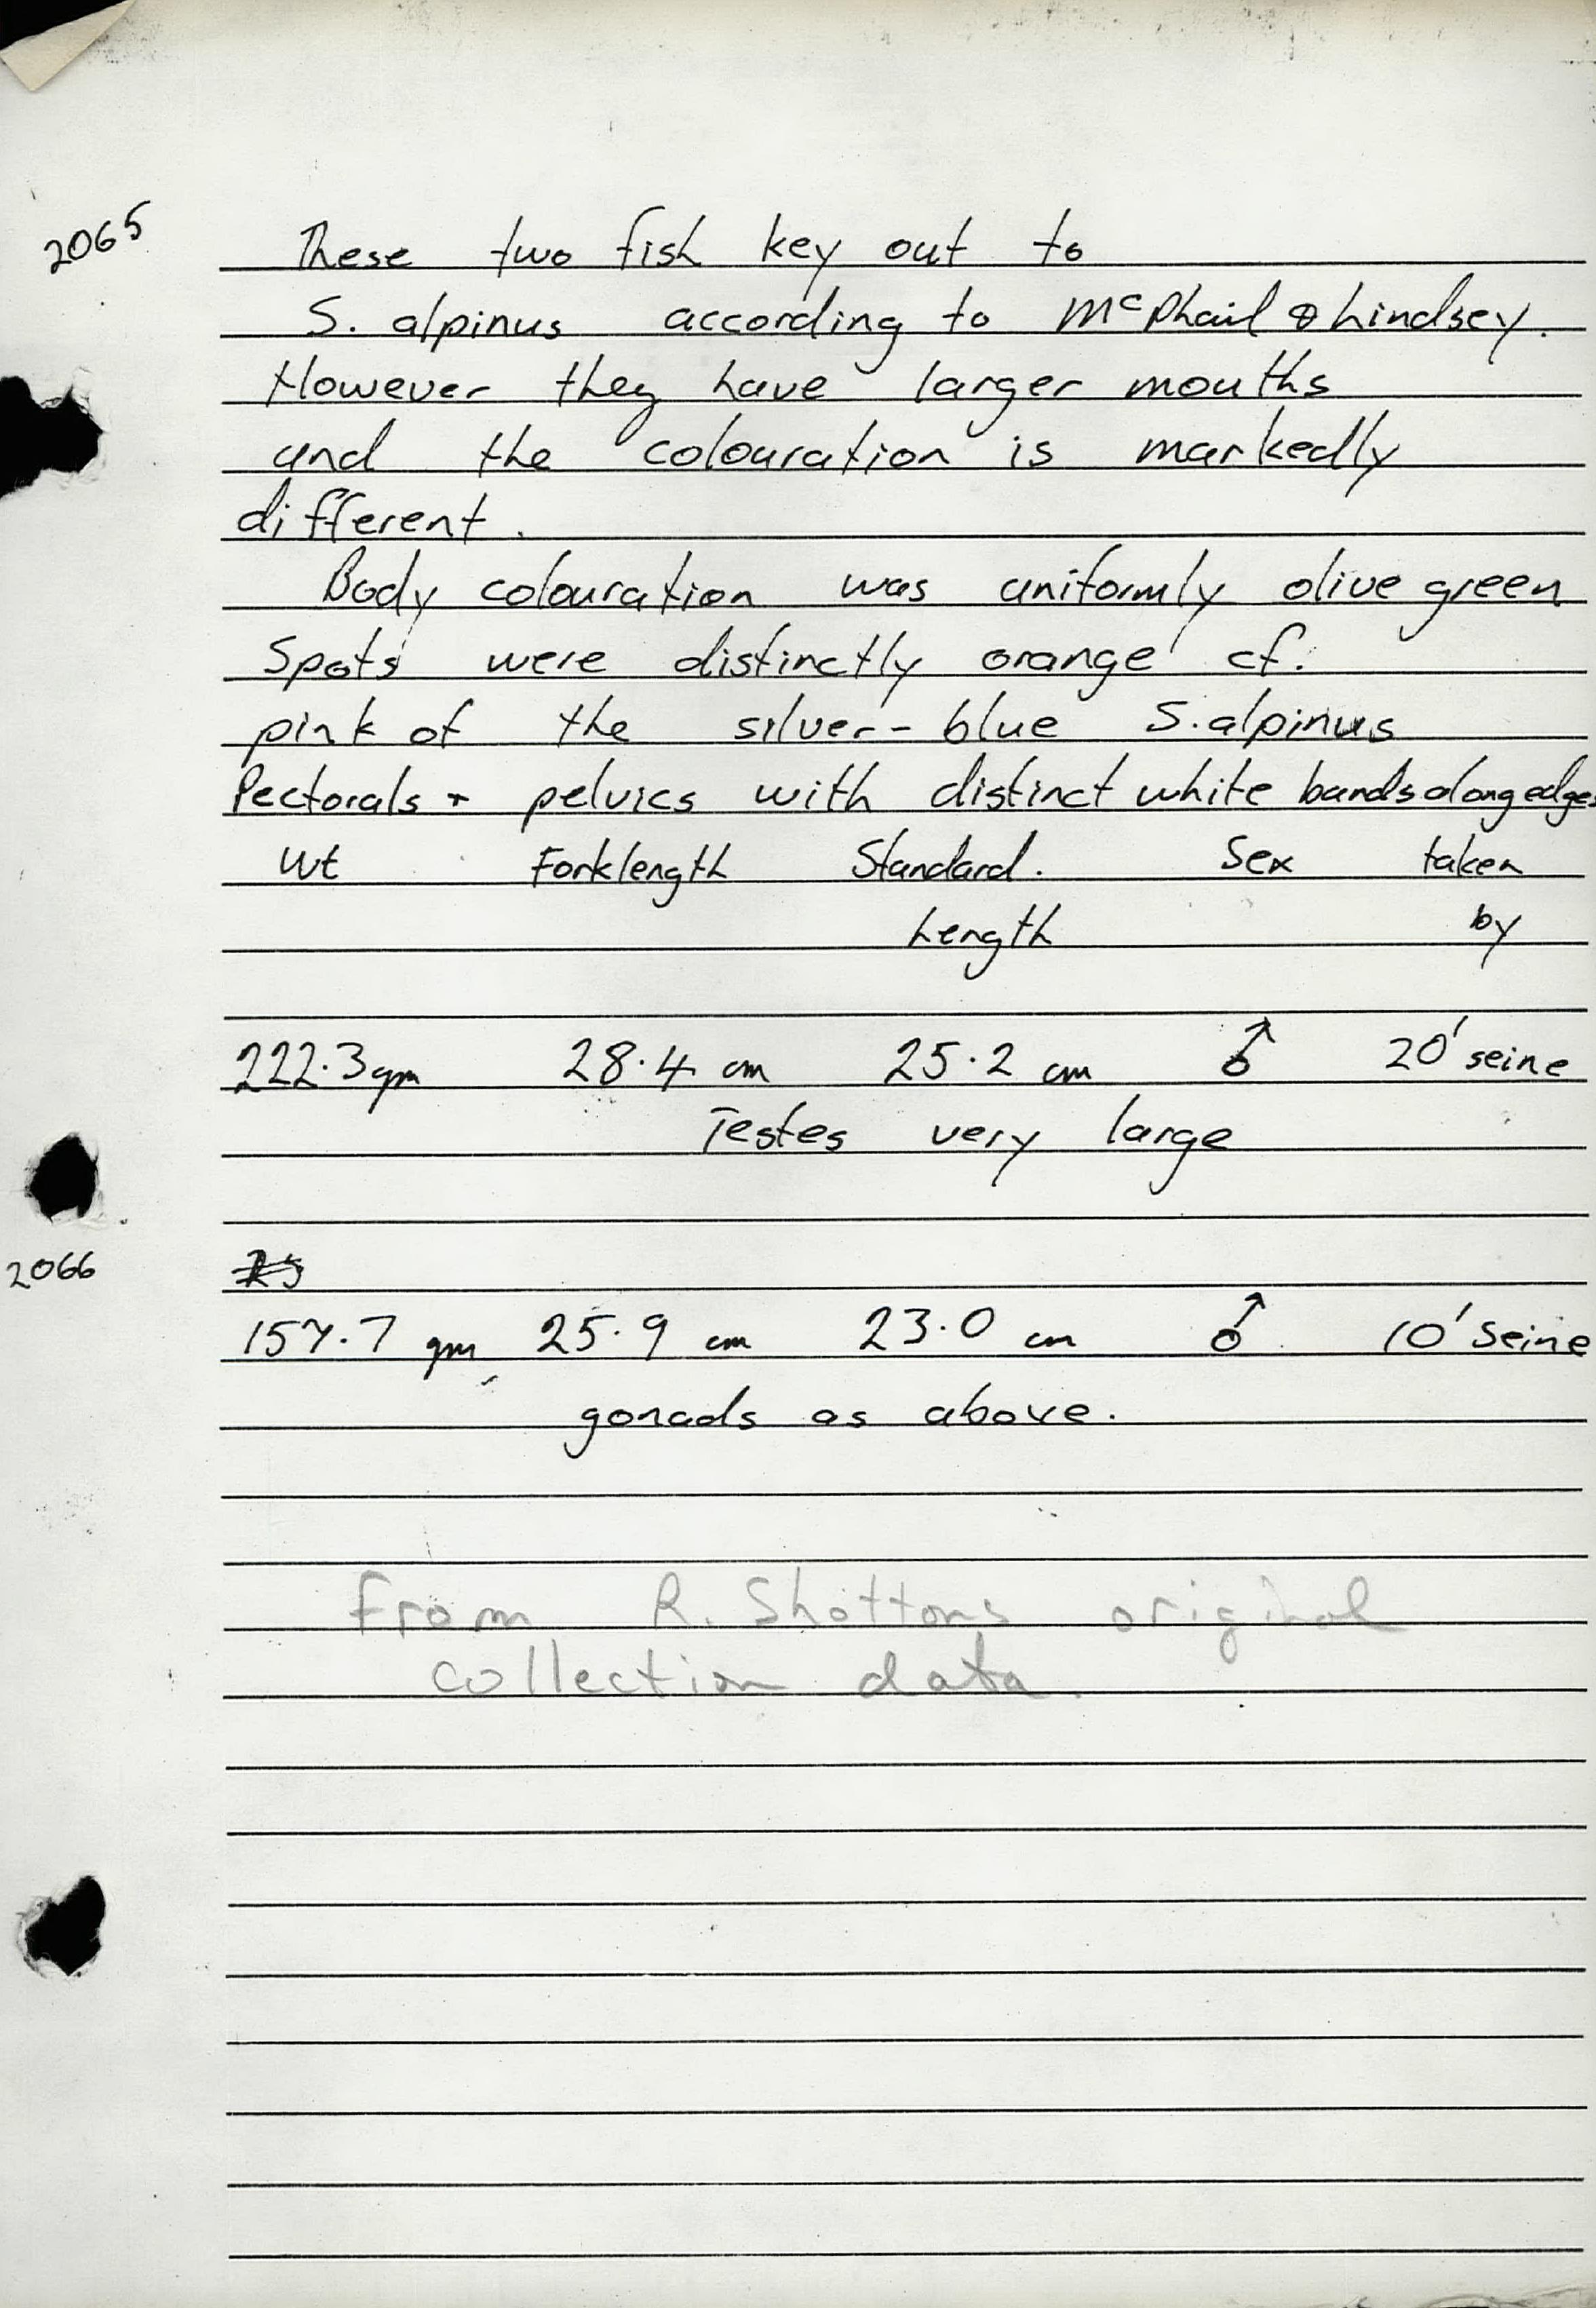 2065 These two fish key out to
S. alpinus according to McPhail & Lindsey.
However they have larger mouths
and the colouration is markedly
different.
Body colouration was uniformly olive green
Spots were distinctly orange cf.
pink of the silver-blue S. alpinus
Pectorals + pelvics with distinct white bands along edges
Wt Forklength Standard. Sex taken
Length by
222.3 gm 28.4 cm 25.2 cm ♂ 20' seine
Testes very large
2066
gm 25.9 cm 23.0 cm ♂ 10' Seine
gonads as above.
From R. Shottons original
collection data.